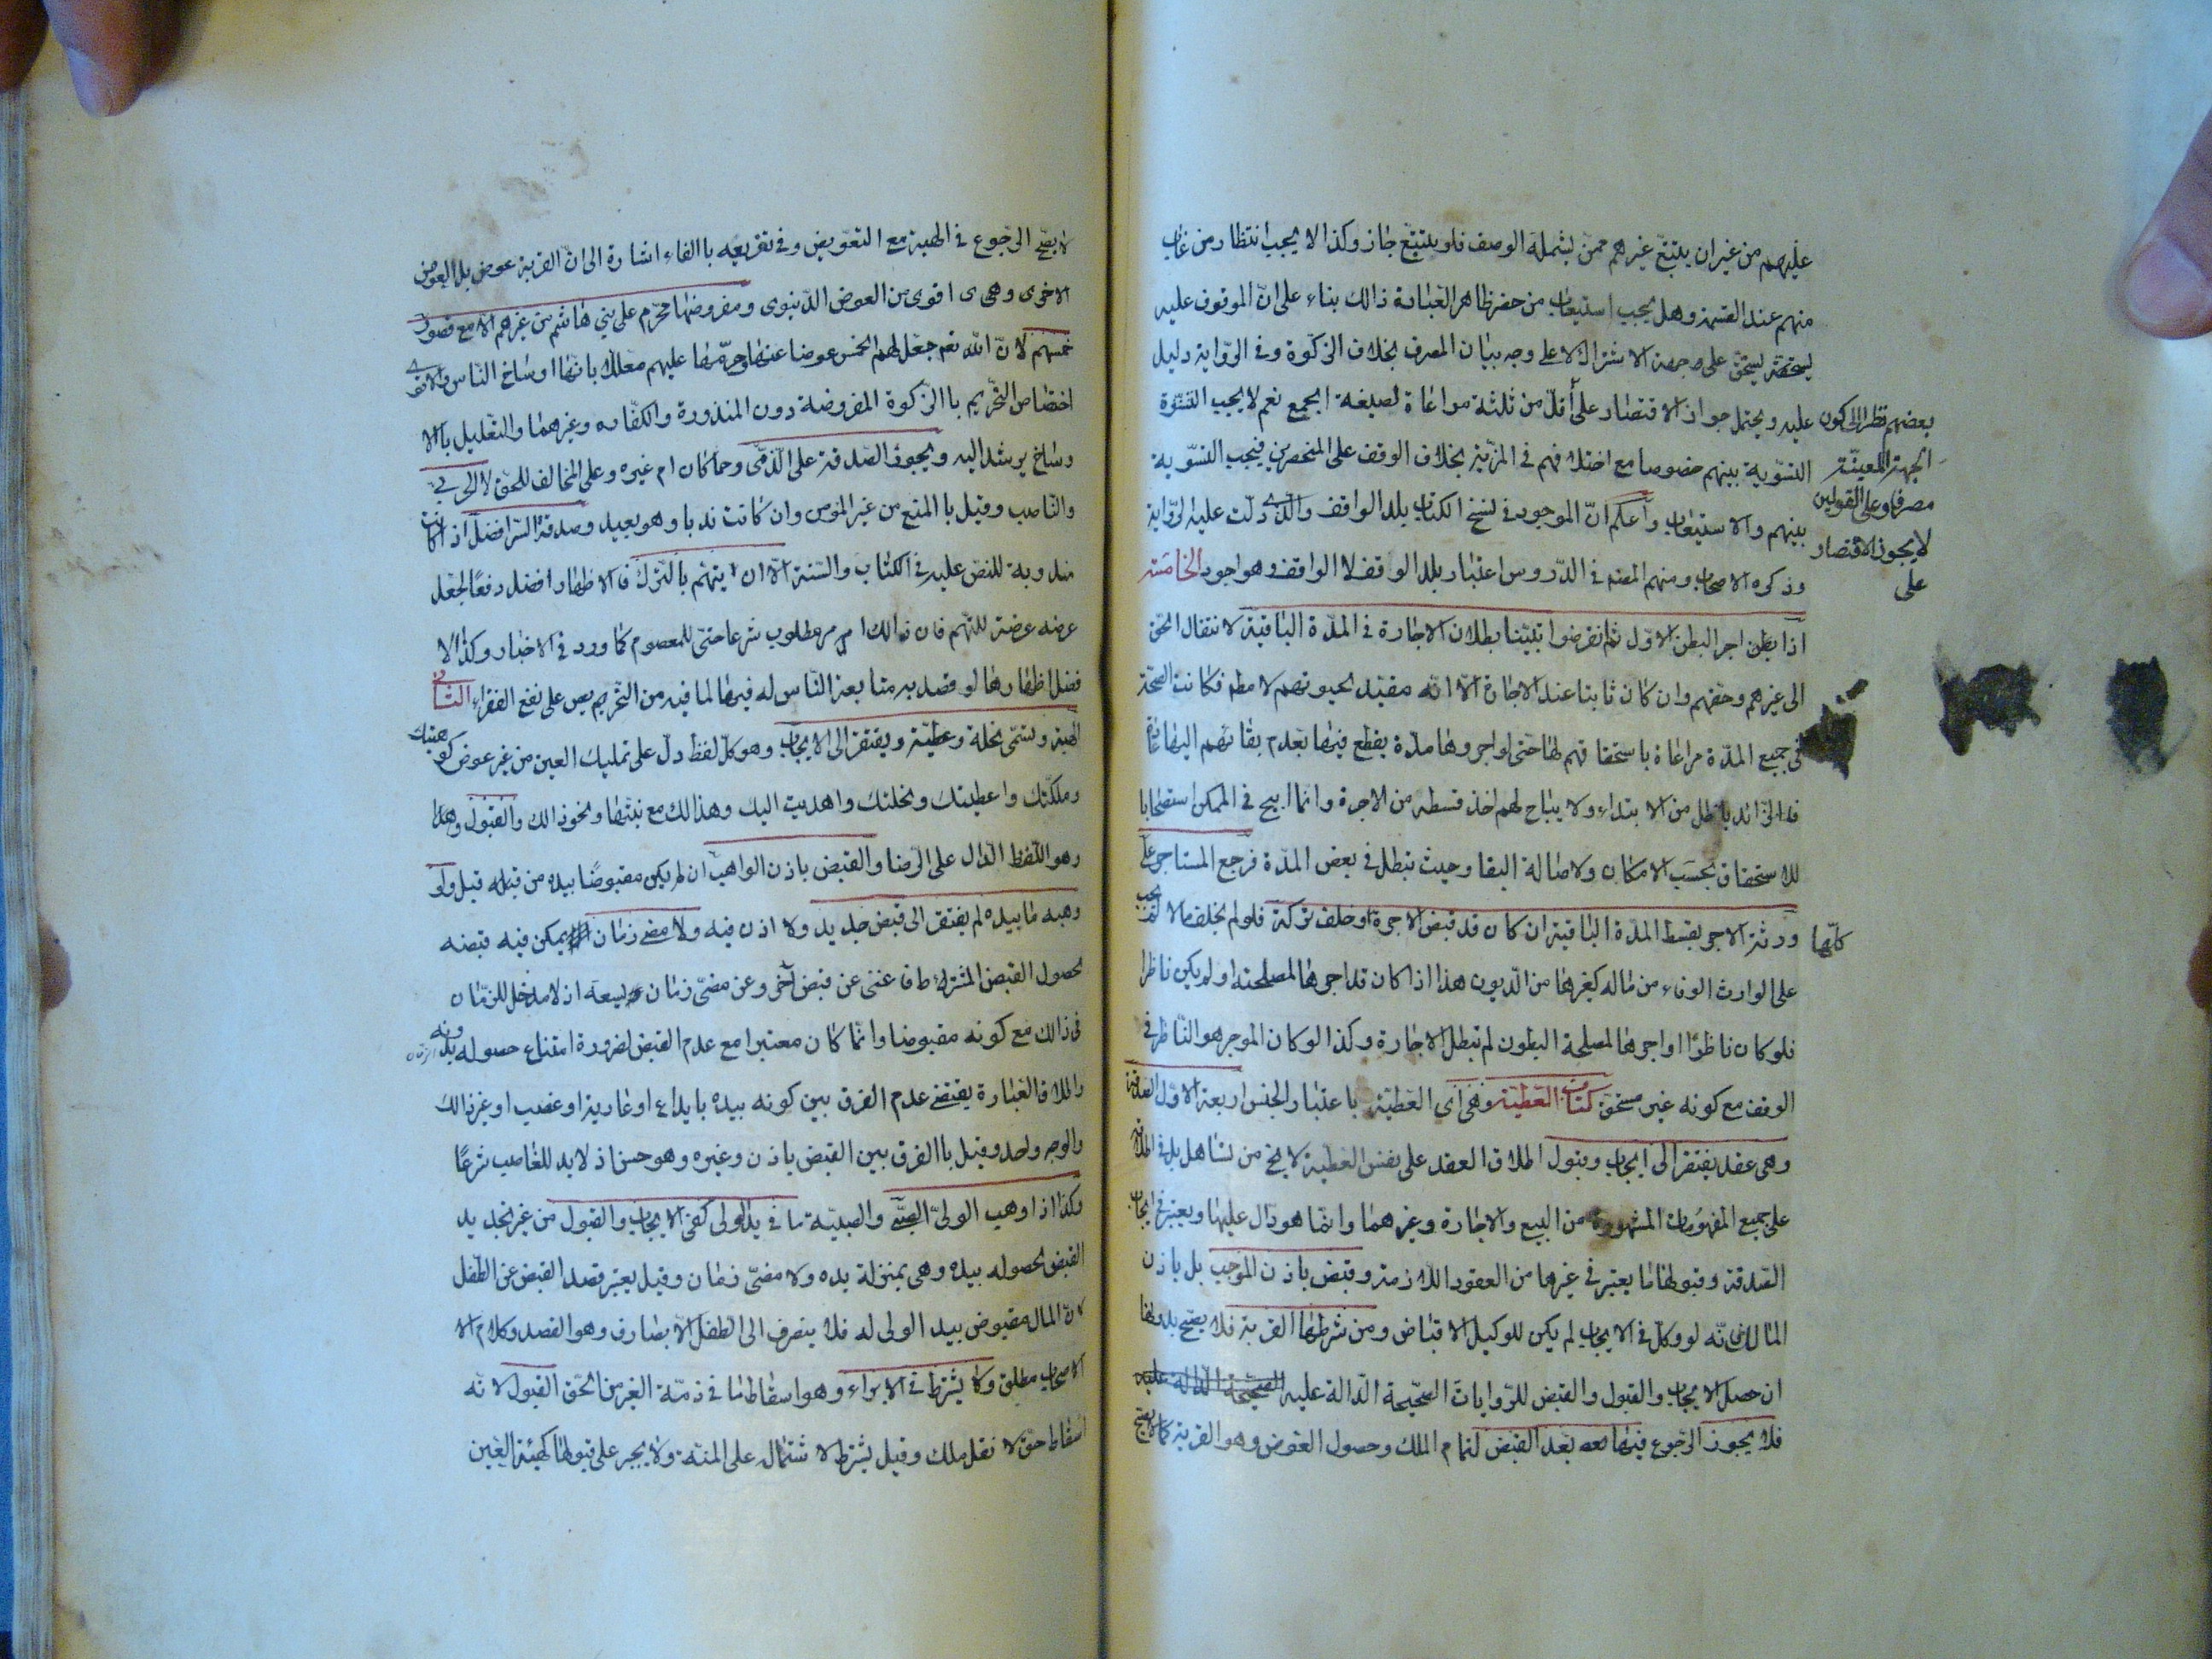 عليهم من غير ان يتتبع غيرهم ممن يشمله الوصف فلو يتتبع جاز وكذا لا يجب انتظار من غاب
منهم عند القسمة وهل يجب استيعاب من حضر ظاهر العبارة ذالك بناء على انّ الموقوف عليه
يستحق على جهة الاشتراك لا على وجه بيان المصرف بخلاف الزكوة وفى الرّواية دليل
عليه ويحتمل جواز الاقتصار على أقلّ من ثلثة مراعاة لصيغة الجمع نعم لا يجب التسّوية
بعضهم نظرا الى كون
الجهة المعيّنة
مصرفا وعلى القولين
لا يجوز الاقتصار
على
التسّوية بينهم خصوصا مع اختلافهم فى المزيّة بخلاف الوقف على المنحصرين فيجب التسّوية
بينهم والاستيعاب واعلم انّ الموجود فى نسخ الكتاب بلد الواقف والذى دلّت عليه الرّواية
وذكره الاصحاب ومنهم المصنف فى الدّروس اعتبار بلد الوقف لا الواقف وهو اجود الخامسة
اذا اجر البطن الاوّل ثم انقرضوا تبيّنا بطلان الاجارة فى المدّة الباقية لانتقال الحق
الى غيرهم وحقهم وان كان ثابتا عند الاجارة الّا انّه مقيّد بحيوتهم لا مطم فكانت الصحّة
فى جميع المدّة مراعاة باستحقاقهم لها حتى لو اجروها مدّة يقطع فيها بعدم بقائهم اليها غالبا
فالزّائد باطل من الابتداء ولا يباح لهم اخذ قسطه من الاجرة وانما ابيح فى الممكن استصحابا
للاستحقاق بحسب الامكان ولاصالة البقا وحيث تبطل فى بعض المدّة فرجع المستاجر على
ورثة الاجر بقسط المدّة الباقية ان كان قد قبض الاجرة وخلف تركة فلو لم يخلف مالا لم يجب
كلّها
على الوارث الوفاء من ماله كغيرها من الدّيون هذا اذا كان قد اجرها لمصلحته او لم يكن ناظرا
فلو كان ناظرًا واجرها لمصلحة البطون لم تبطل الاجارة وكذا لو كان الموجر هو النّاظر فى
الوقف مع كونه غير مستحق كتاب العطيّة وهى اى العطيّة باعتبار الجنس اربعة الاوّل الصدقة
وهى عقد يفتقر الى ايجاب وقبول اطلاق العقد على نفس العطية لا يخ من تساهل بل فى اطلاقه
على جميع المفهومات المشهورة من البيع والاجارة وغيرهما وانما هو دال عليها ويعتبر فى ايجاب
الصّدقة وقبولها ما يعتبر فى غيرها من العقود اللّازمة وقبض باذن الموجب بل باذن
المالك فانّه لو وكّل فى الايجاب لم يكن للوكيل الاقباض ومن شرطها القربة فلا يصّح بدونها
ان حصل الايجاب والقبول والقبض للرّوايات الصّحيحة الدّالة عليه
فلا يجوز الرّجوع فيها بعد القبض لتمام الملك وحصول العوض وهو القربة كما لا يصّح
لا يصّح الرّجوع فى الهبة مع التعّويض وفى تفريعه باالفاء اشارة الى انّ القربة عوض بل العوض
الاخروى اقوى من العوض الدّنيوى ومفروضها محرّم على بنى هاشم من غيرهم الّا مع قصور
خمسهم لانّ اللّه تعم جعل لهم الخمس عوضا عنها وحرّمها عليهم معلّلا بانّها اوساخ النّاس والاقوى
اختصاص التحّريم باالزّكوة المفروضة دون المنذورة والكفّاره وغيرهما والتعّليل باالا
وساخ يرشد اليه ويجوز الصّدقة على الذّمى وحما كان ام غيره وعلى المخالف للحق لا الحربى
والنّاصب وقيل باالمنع من غير المؤمن وان كانت ندبا وهو بعيد وصدقة السّر افضل اذ كانت
مندوبة للنصّ عليه فى الكتاب والسّنة الّا ان يتهّم بالتّرك فالاظهار افضل دفعًا لجعل
عرضه عرضة للتّهم فان ذالك امر مطلوب شرعا حتّى للمعصوم كما ورد فى الاخبار وكذا الا
فضل اظهارها لو قصد به متابعة النّاس له فيها لما فيه من التحّريص على نفع الفقراء الثانى
الهبة وتسّمى نحلة وعطيّة ويفتقر الى الايجاب وهو كلّ لفظ دلّ على تمليك العين من غير عوض كوهبتك
وملّكتك واعطيتك ونحلتك واهديت اليك وهذا لك مع نيّتها ونحو ذالك والقبول وهذا
وهو اللّفظ الدّال على الرّضا والقبض باذن الواهب ان لم يكن مقبوضًا بيده من قبله قبل ولو
وهبه ما بيده لم يفتقر الى قبض جديد ولا اذن فيه ولا مضى زمان يمكن فيه قبضه
لحصول القبض المشترط فاغنى عن قبض اخر وعن مضىّ زمان يسعه اذ لا مدخل للزّمان
فى ذالك مع كونه مقبوضا وانّما كان معتبرا مع عدم القبض لضرورة امتناع حصوله بدونه
واطلاق العبارة يقتضى عدم الفرق بين كونه بيده بايداع او عارية او غصب او غير ذالك
والوجه واحد وقيل باالفرق بين القبض باذن وغيره وهو حسن اذ لا يد للغاصب شرعًا
وكذا اذا وهب الولىّ الصّبى والصبيّة ما فى يد الولى كفى الايجاب والقبول من غير تجديد
القبض لحصوله بيده وهى بمنزلة يده ولا مضىّ زمان وقيل يعتبر قصد القبض عن الطّفل
لانّ المال مقبوض بيد الولى له فلا ينصرف الى الطّفل الّا بصارف وهو القصد وكلام الا
الاصحاب مطلق ولا يشترط فى الابراء وهو اسقاط ما فى ذمّة الغير من الحّق القبول لانّه
اسقاط حقّ لا نقل ملك وقيل يشترط لاشتماله على المنّة ولا يجبر على قبولها كهبة العين